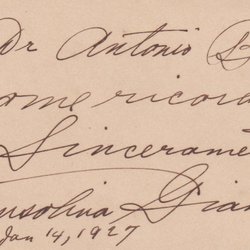 Dr Antonio
come ricor
Sincerame
Gian
Jan 14, 1927